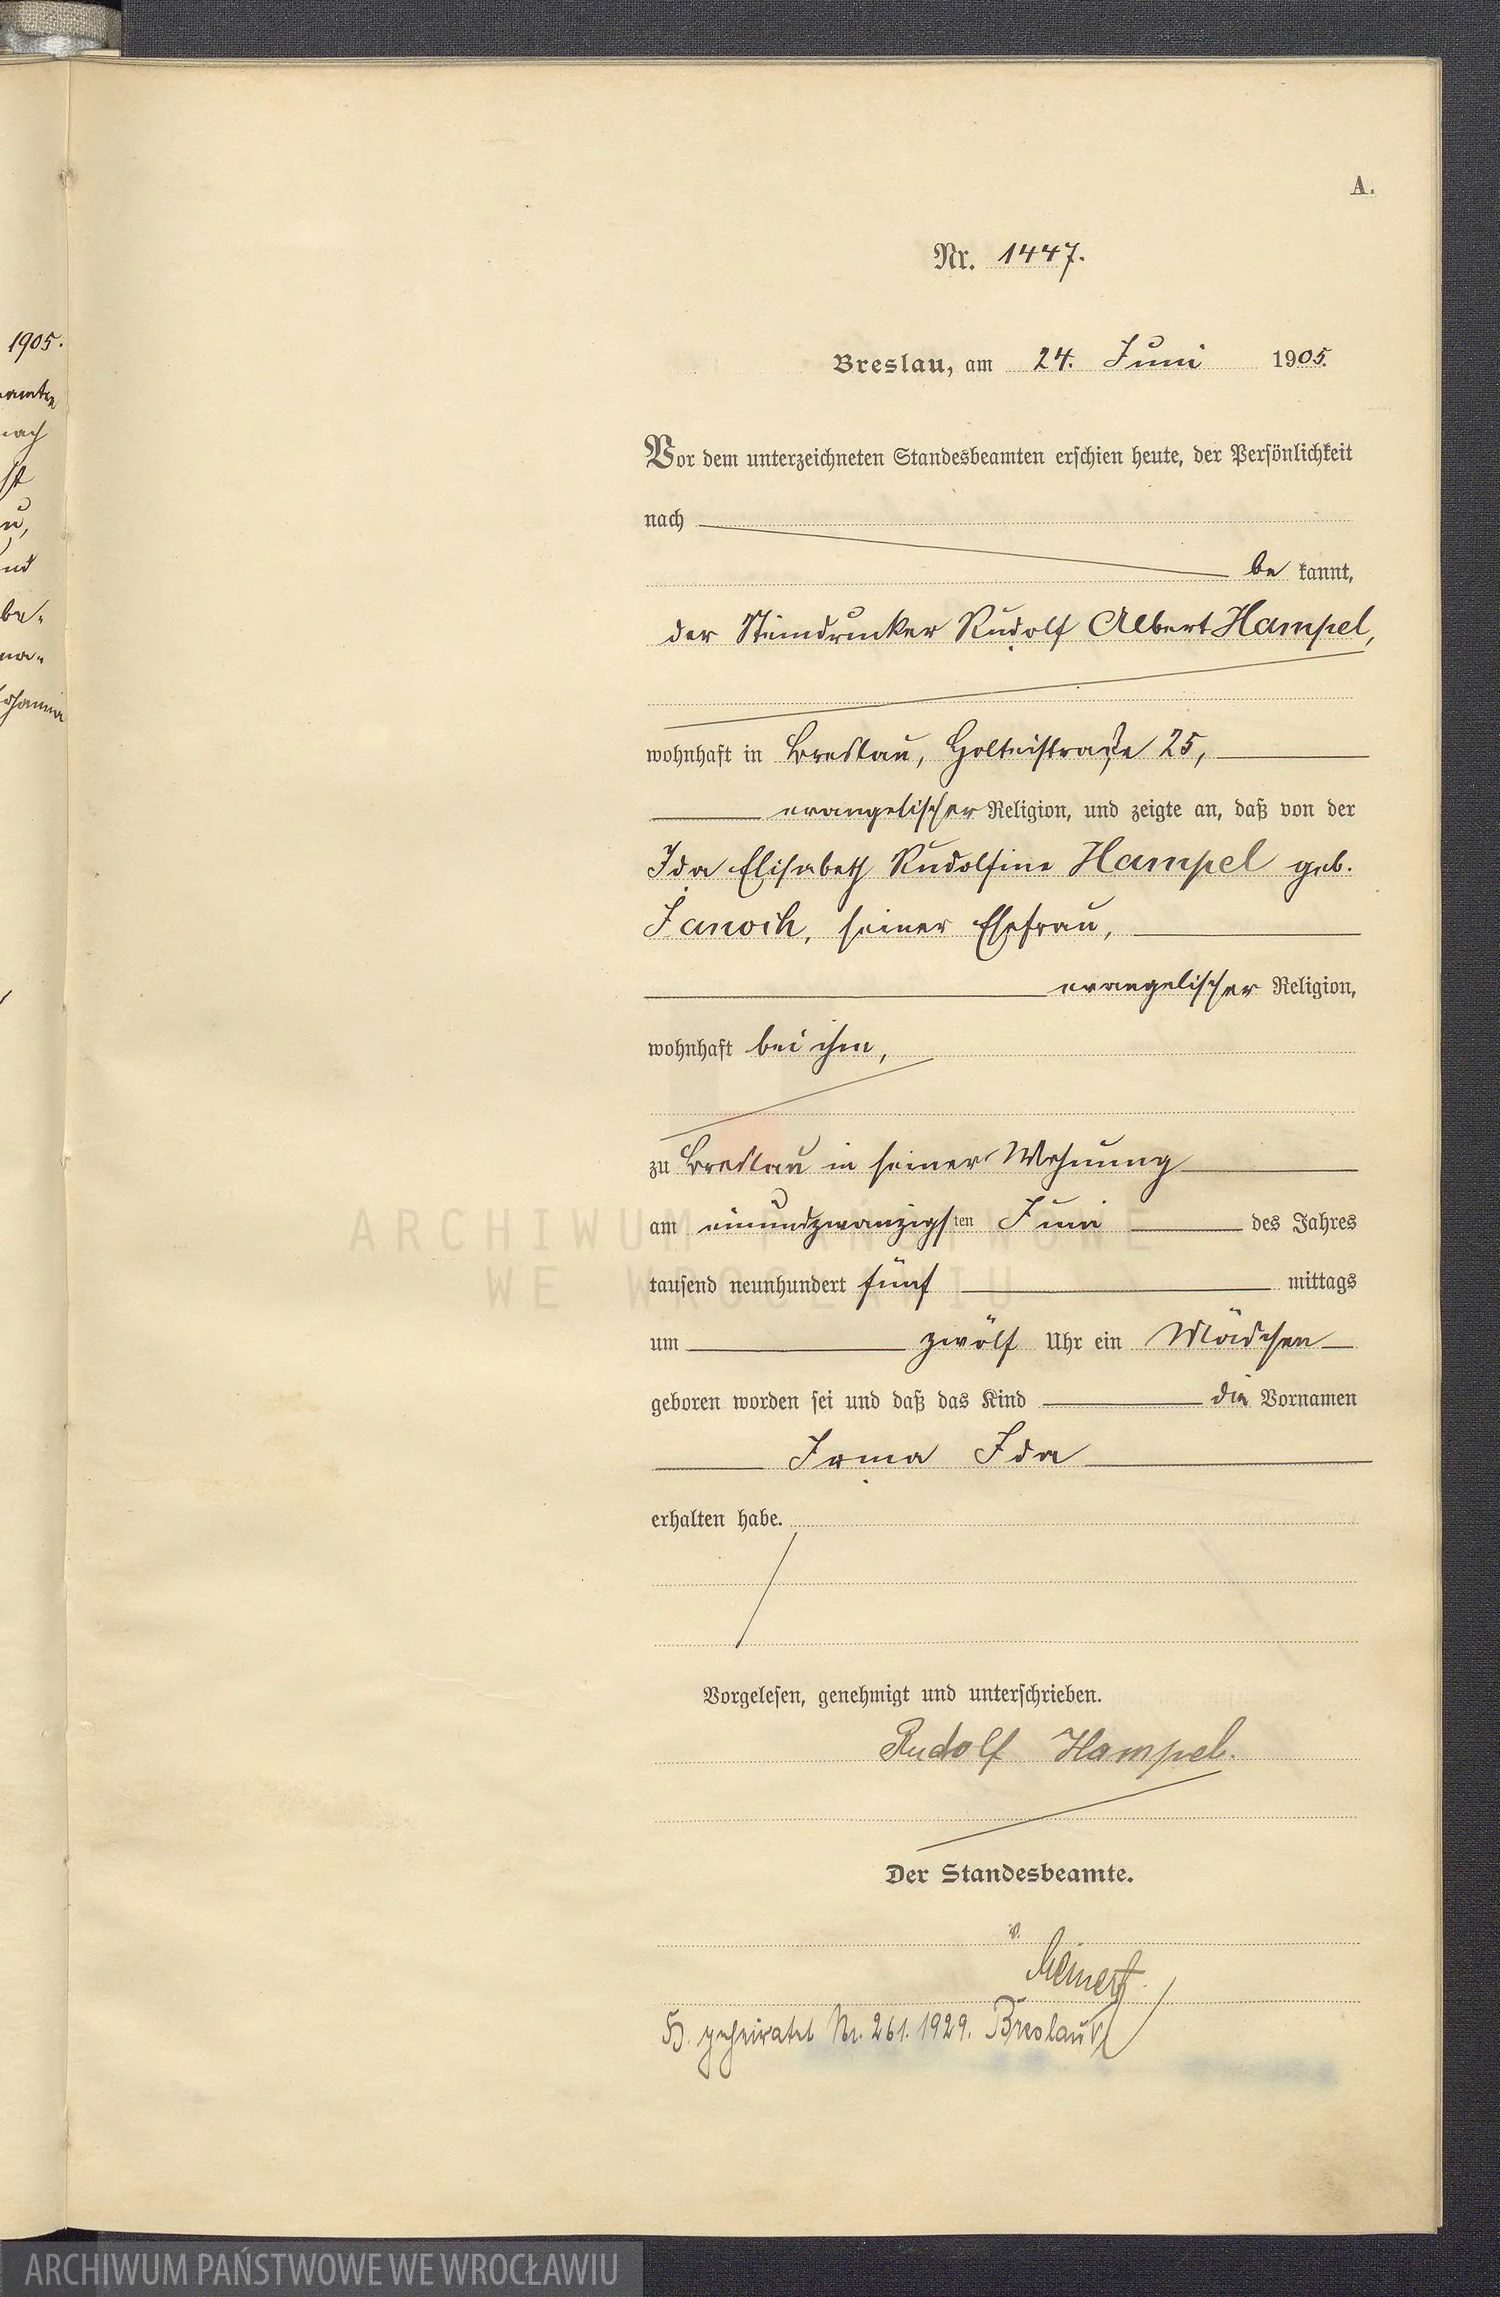 1905.
A.
Nr. 1447.
Breslau, am 24. Juni 1905.
Vor dem unterzeichneten Standesbeamten erschien heute, der Persönlichkeit
nach
be kannt,
der Steindrucker Rudolf Albert Hampel,
wohnhaft in Breslau, Holteistraße 25,
evangelischer Religion, und zeigte an, daß von der
Ida Elisabeth Rudolfine Hampel geb.
Janoch, seiner Ehefrau,
evangelischer Religion,
wohnhaft bei ihm,
zu Breslau in seiner Wohnung
am einundzwanzigsten Juni des Jahres
tausend neunhundert fünf mittags
um zwölf Uhr ein Mädchen
geboren worden sei und daß das Kind die Vornamen
Irma Ida
erhalten habe.
Vorgelesen, genehmigt und unterschrieben.
Rudolf Hampel.
Der Standesbeamte.
geheiratet Nr. 261. 1929. Breslau
ARCHIWUM PAŃSTWOWE
WE WROCŁAWIU
ARCHIWUM PAŃSTWOWE WE WROCŁAWIU